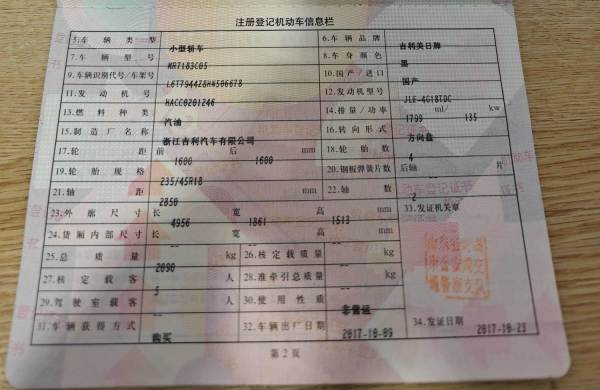 注册登记机动车信息栏
5.车辆类型 小型轿车 6.车辆品牌 吉利美日牌
7.车辆型号 MR7183C05 8.车身颜色 黑
9.车辆识别代号/车架号 L6T7944Z8HN506678 10.国产/进口 国产
11.发动机号 HACC0201246 12.发动机型号 JLE-4G18TDC
13.燃料种类 汽油 14.排量/功率 1799 135 kw
15.制造厂名称 浙江吉利汽车有限公司 16.转向形式 方向盘
17.轮距 前 1600 后 1600 mm 18.轮胎数 4
19.轮胎规格 235/45R18 20.钢板弹簧片数 后轴 -- 片
21.轴距 2850 mm 22.轴数 2
23.外廓尺寸 长 4956 宽 1861 高 1513 mm 33.发证机关章
24.货厢内部尺寸 长 -- 宽 -- 高 -- mm
25.总质量 2090 kg 26.核定载质量 -- kg
27.核定载客 5 人 28.准牵引总质量 -- kg
29.驾驶室载客 -- 人 30.使用性质 非营运
31.车辆获得方式 购买 32.车辆出厂日期 2017-10-09 34.发证日期 2017-10-23
第2页